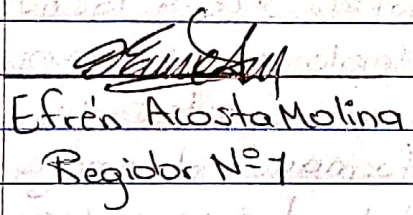 Efrén Acosta Molina
Regidor Nº1